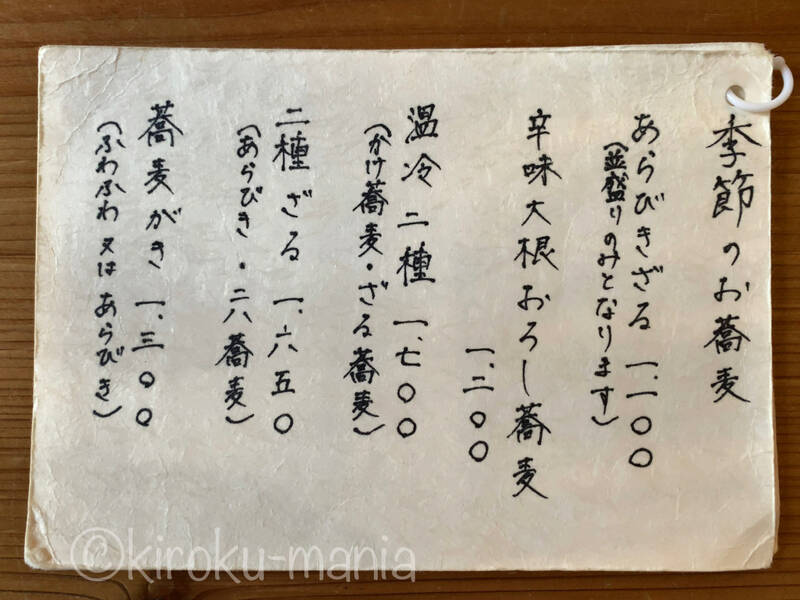 季節のお蕎麦
あらびきざる 一、一〇〇
（並盛りのみとなります）
辛味大根おろし蕎麦
一、二〇〇
温冷二種 一、七〇〇
（かけ蕎麦・ざる蕎麦）
二種ざる 一、六五〇
（あらびき・二八蕎麦）
蕎麦がき 一、三〇〇
（ふわふわ 又は あらびき）
©kiroku-mania